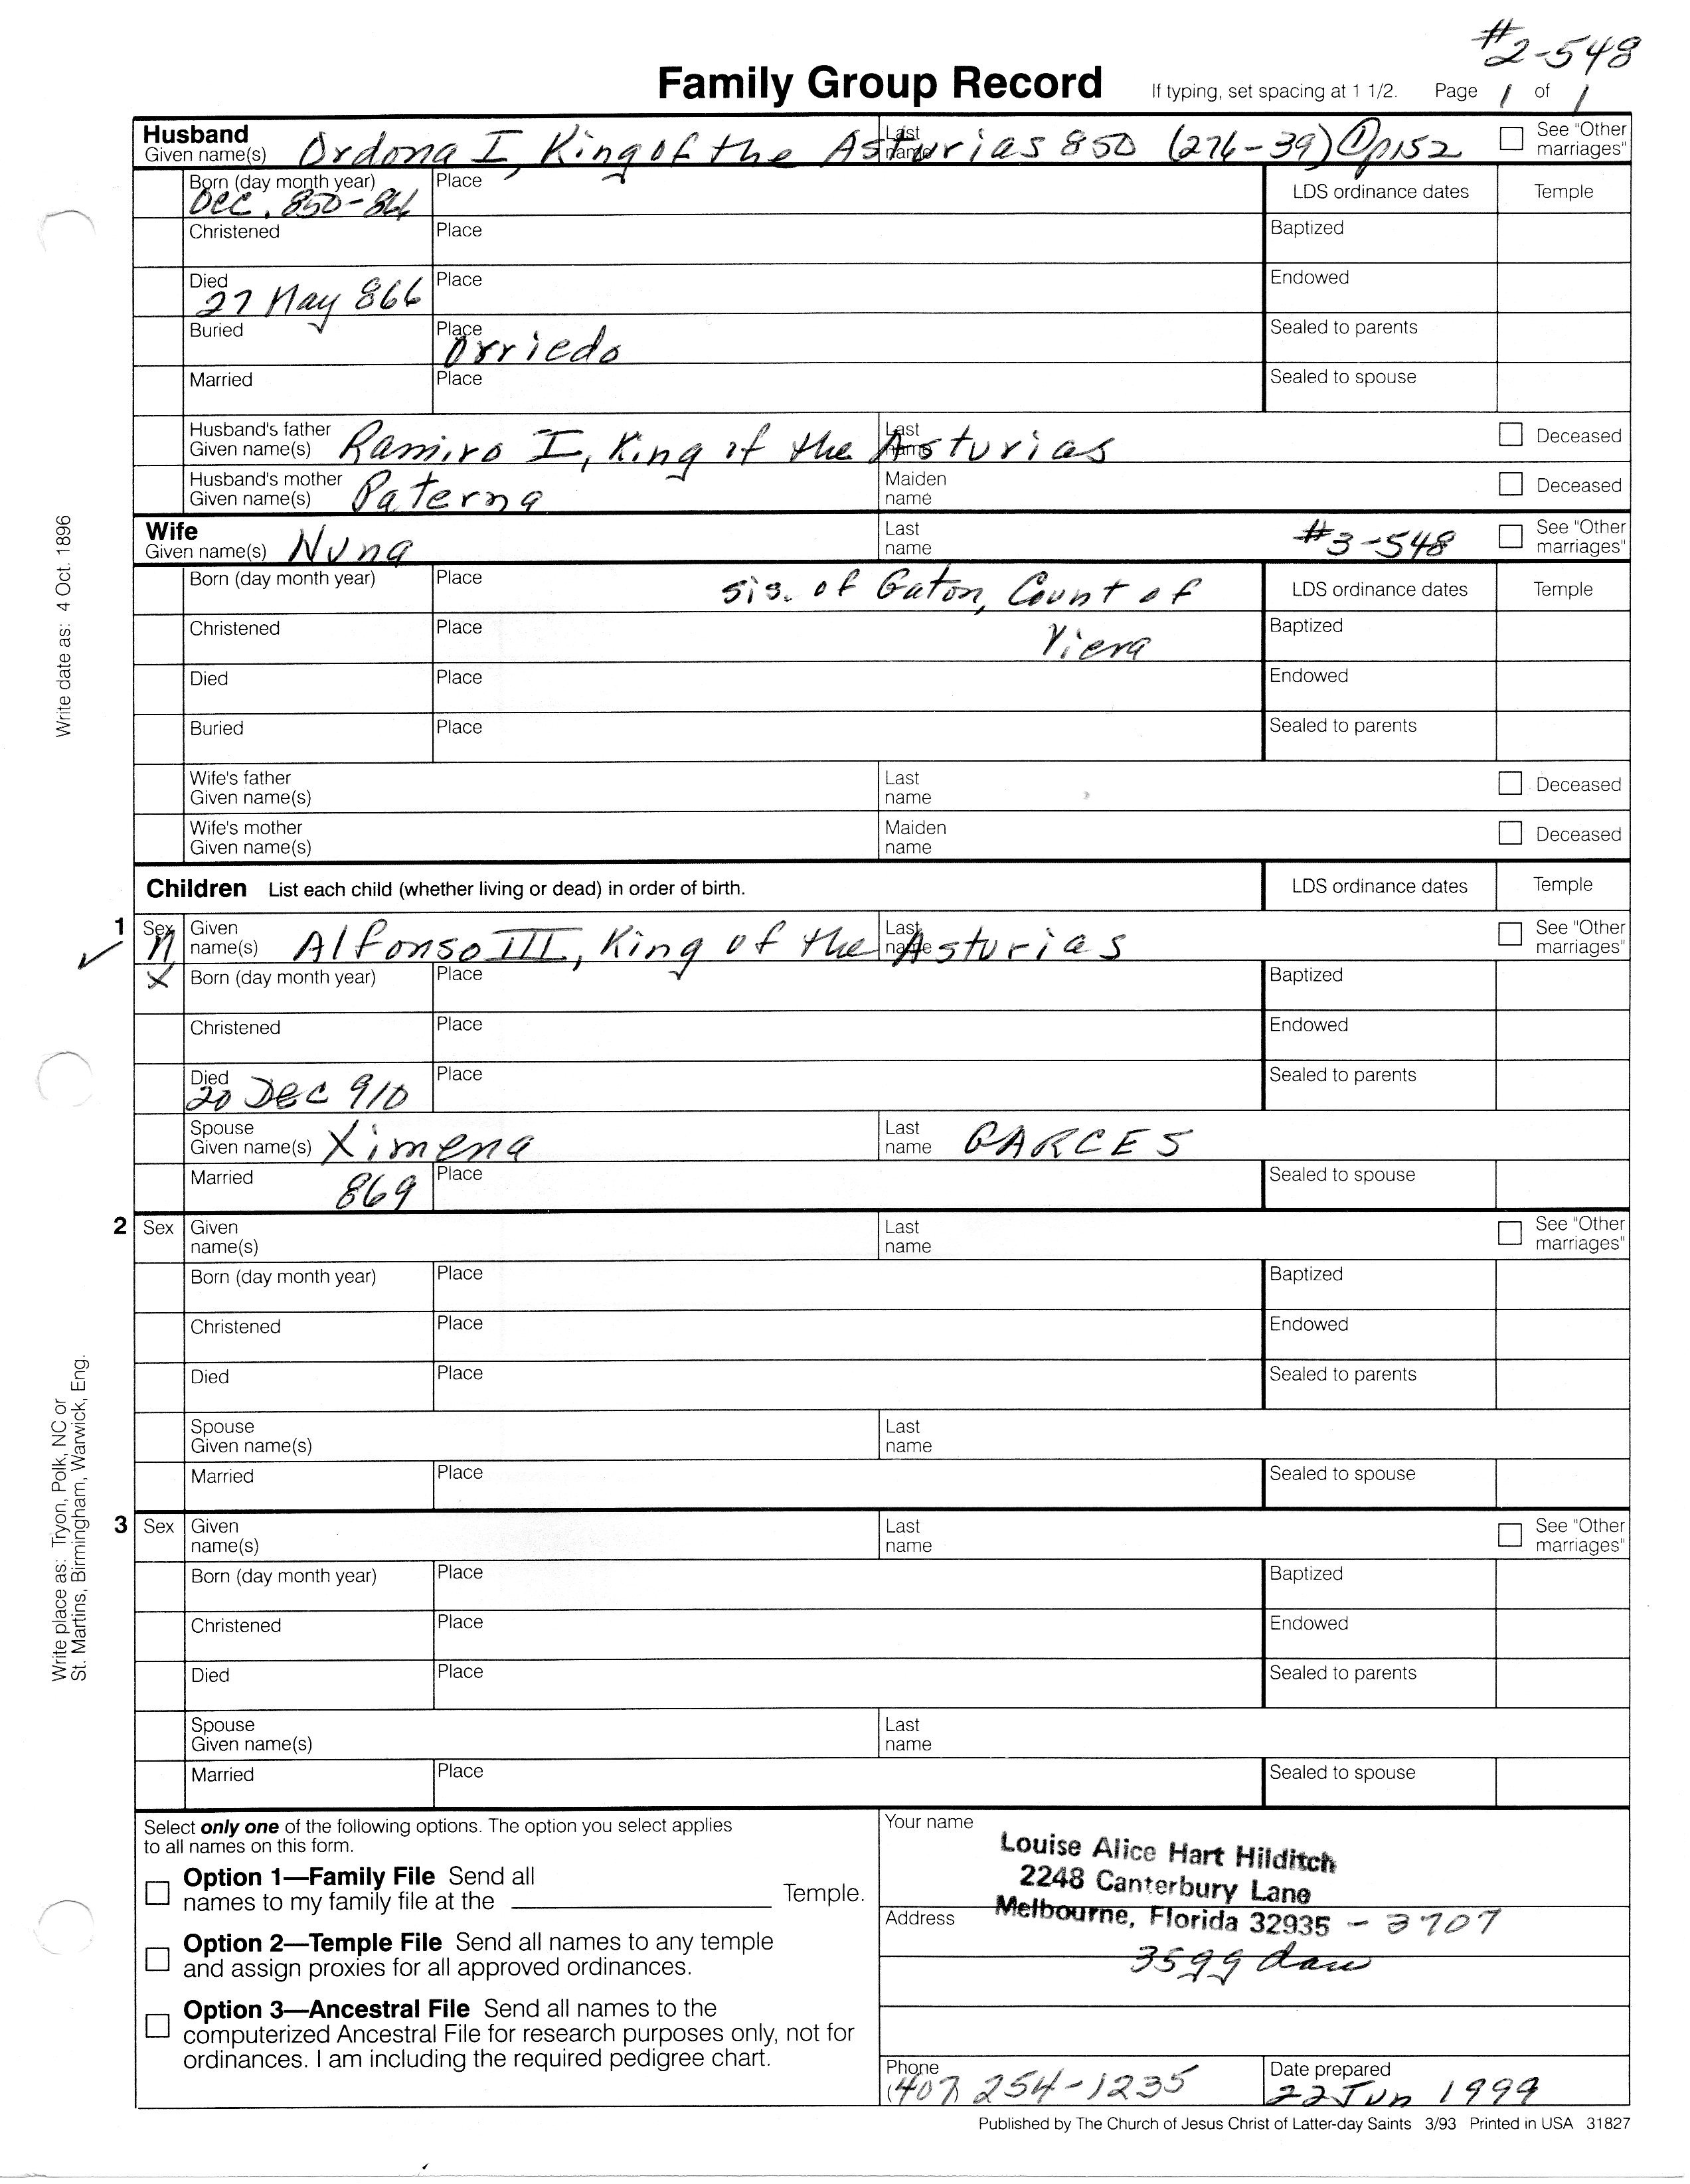 #2-548
Family Group Record If typing, set spacing at 1 1/2. Page 1 of 1
Husband
Given name(s) Ordona I, King of the Asturias 850 (276-39) ① p152 Last name See "Other marriages"
Born (day month year) Dec. 850-866 Place LDS ordinance dates Temple
Christened Place Baptized
Died 27 May 866 Place Endowed
Buried Place Orriedo Sealed to parents
Married Place Sealed to spouse
Husband's father Given name(s) Ramiro I, King of the Asturias Last name Deceased
Husband's mother Given name(s) Paterna Maiden name Deceased
Wife
Given name(s) Nuna Last name #3-548 See "Other marriages"
Born (day month year) Place sis. of Gaton, Count of LDS ordinance dates Temple
Christened Place Viera Baptized
Died Place Endowed
Buried Place Sealed to parents
Wife's father Given name(s) Last name Deceased
Wife's mother Given name(s) Maiden name Deceased
Children List each child (whether living or dead) in order of birth. LDS ordinance dates Temple
1 Sex M Given name(s) Alfonso III, King of the Asturias Last name See "Other marriages"
X Born (day month year) Place Baptized
Christened Place Endowed
Died 20 Dec 910 Place Sealed to parents
Spouse Given name(s) Ximena Last name GARCES
Married 869 Place Sealed to spouse
2 Sex Given name(s) Last name See "Other marriages"
Born (day month year) Place Baptized
Christened Place Endowed
Died Place Sealed to parents
Spouse Given name(s) Last name
Married Place Sealed to spouse
3 Sex Given name(s) Last name See "Other marriages"
Born (day month year) Place Baptized
Christened Place Endowed
Died Place Sealed to parents
Spouse Given name(s) Last name
Married Place Sealed to spouse
Write date as: 4 Oct. 1896
Write place as: Tryon, Polk, NC or
St. Martins, Birmingham, Warwick, Eng.
Select only one of the following options. The option you select applies
to all names on this form.
Option 1—Family File Send all
names to my family file at the Temple.
Option 2—Temple File Send all names to any temple
and assign proxies for all approved ordinances.
Option 3—Ancestral File Send all names to the
computerized Ancestral File for research purposes only, not for
ordinances. I am including the required pedigree chart.
Your name
Louise Alice Hart Hilditch
2248 Canterbury Lane
Address Melbourne, Florida 32935 - 3707
35gg
Phone (407) 254-1235 Date prepared 22 Jun 1999
Published by The Church of Jesus Christ of Latter-day Saints 3/93 Printed in USA 31827